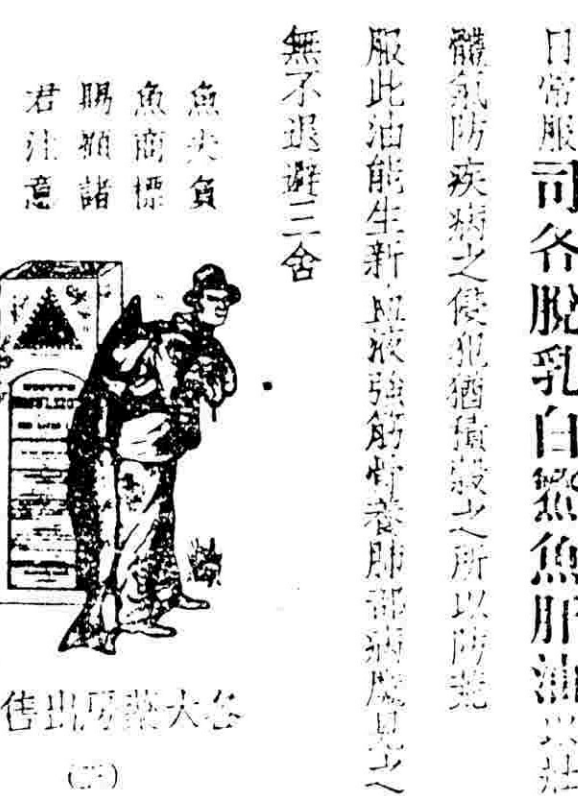 日常服司各脫乳白鰵魚肝油以壯
體氣防疾病之侵犯猶積穀之所以防荒
服此油能生新血液強筋骨養肺部病魔見之
無不退避三舍
魚夫負
魚商標
賜顧諸
君注意
各大藥房出售